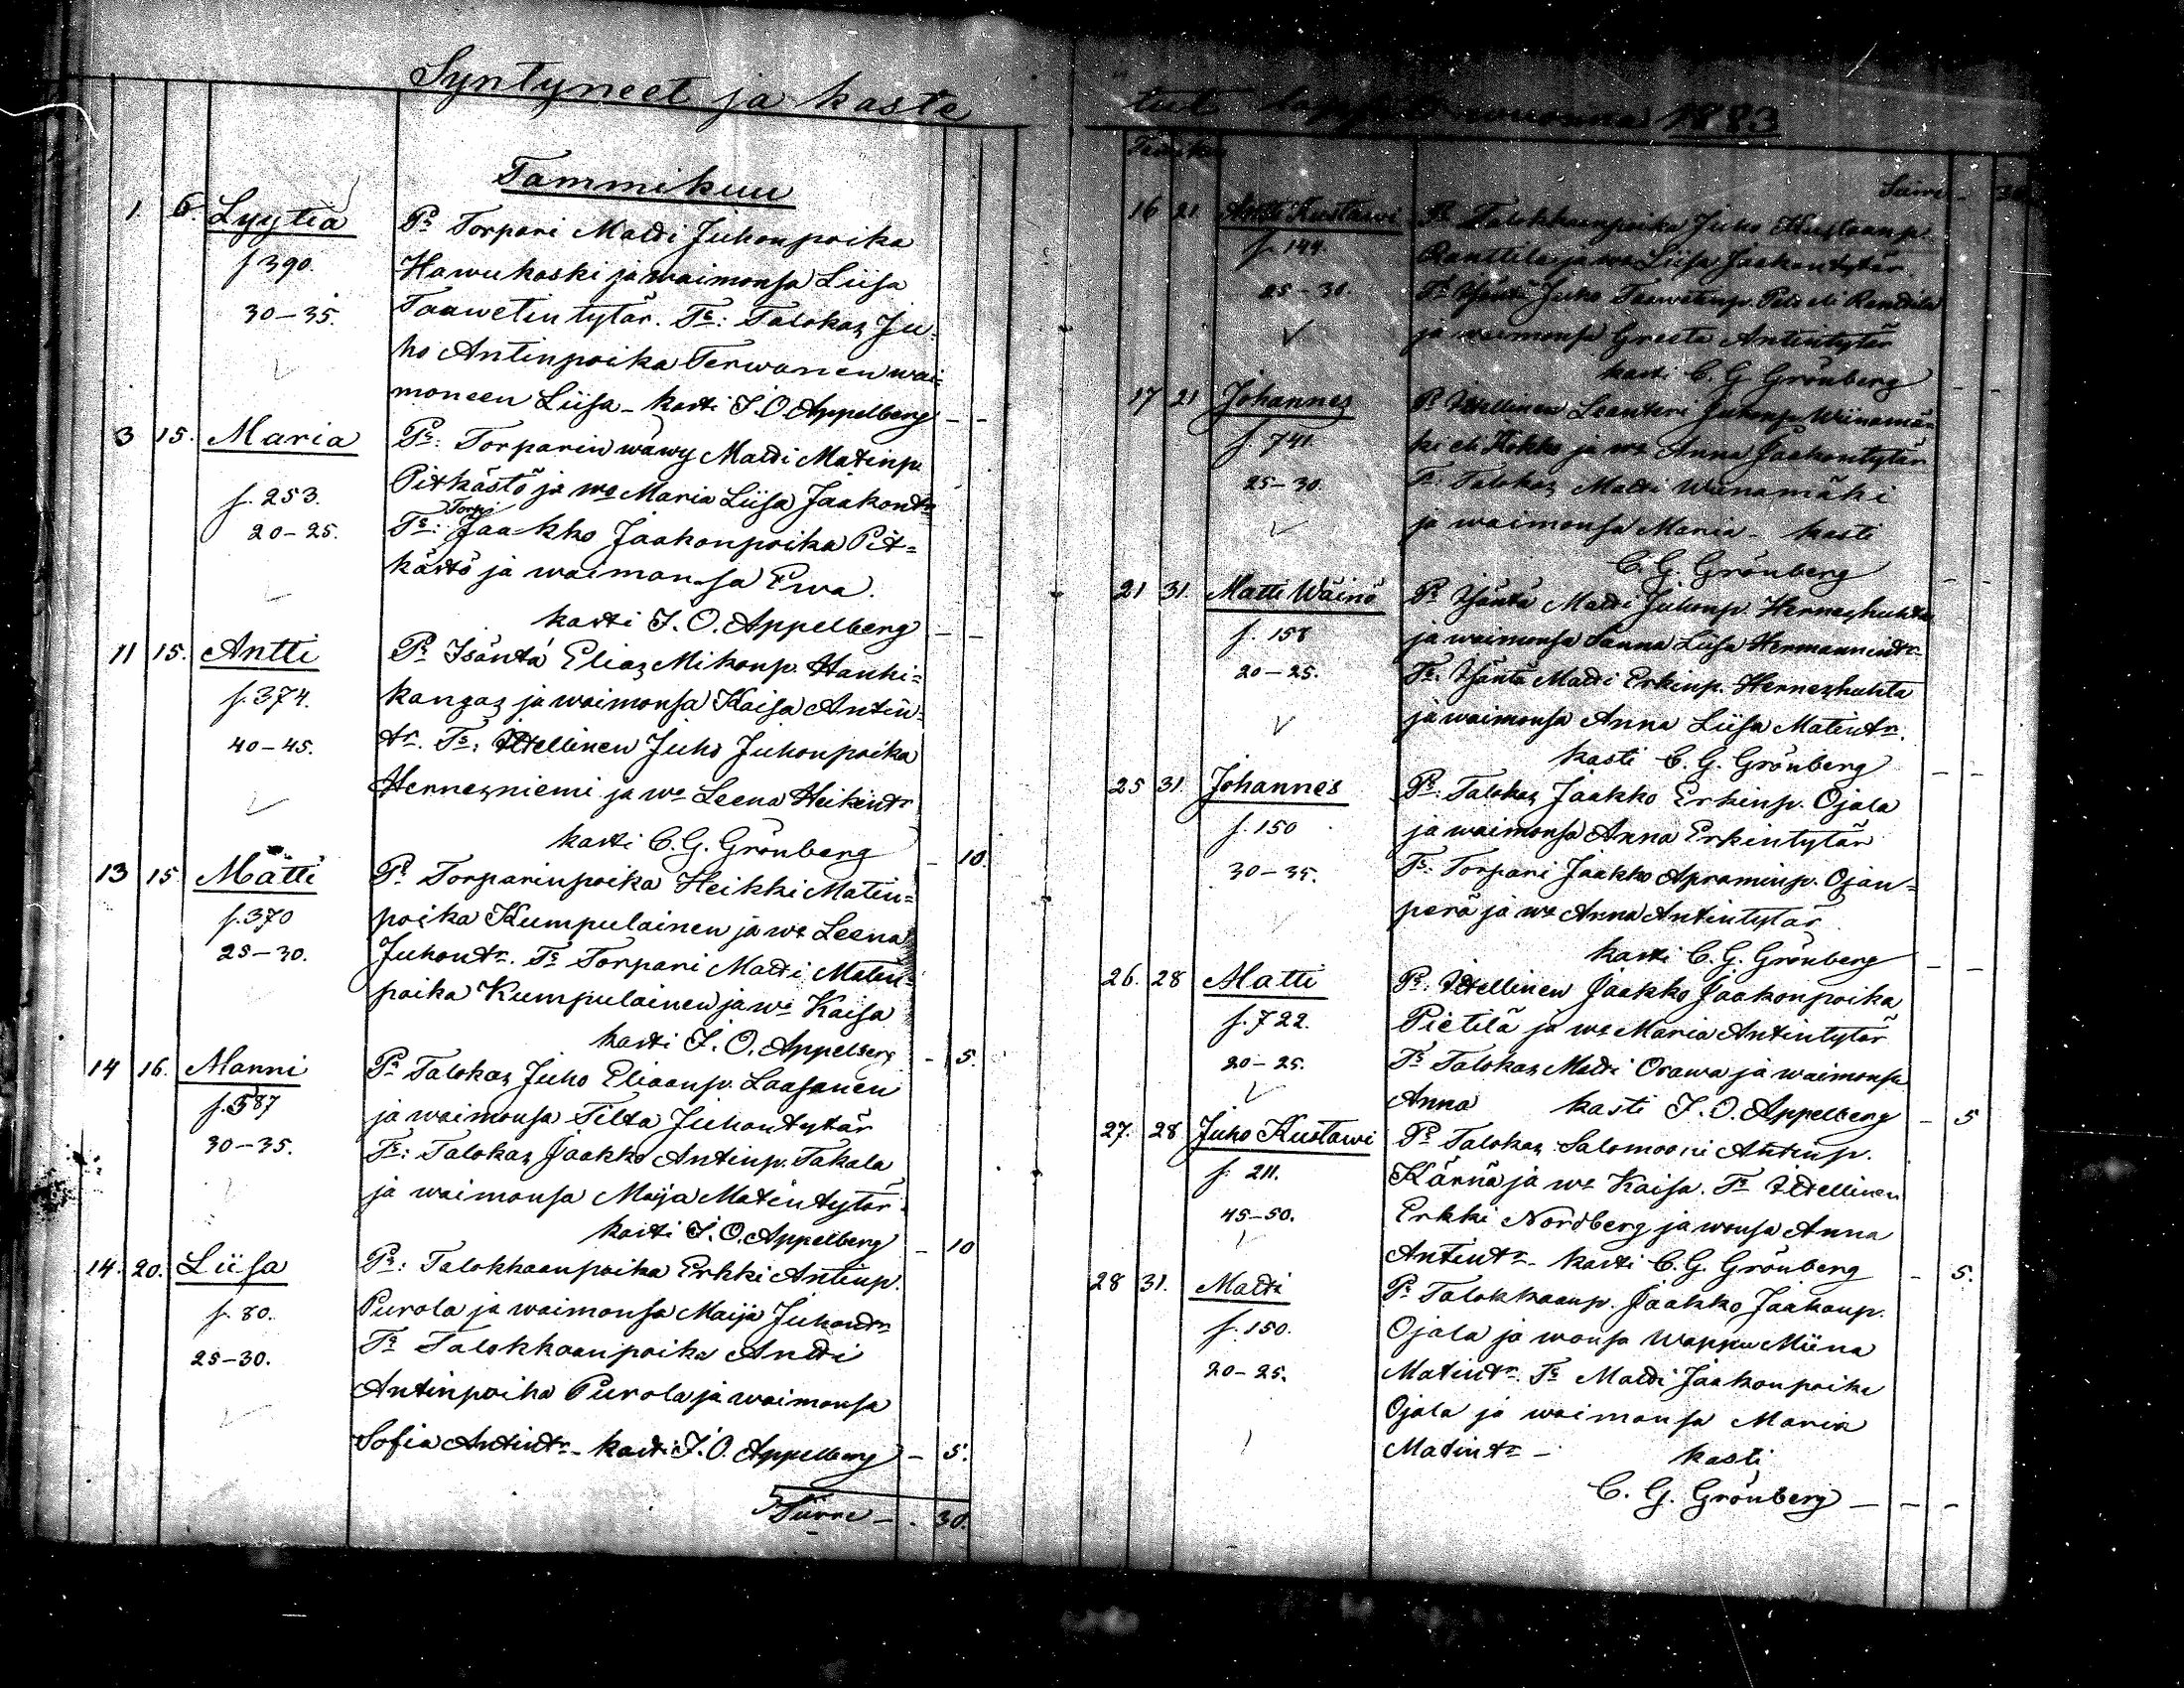 Syntyneet ja kaste
Tammikuu
1 6. Lyytia Ps Torpari Matti Juhonpoika
f 390. Hawukoski ja waimonsa Liisa
30-35. Taawetintytär. Ts: Talokas Ju-
ho Antinpoika Terwanen wai-
moneen Liisa - kasti J. O. Appelberg - -
3 15. Maria Ps: Torparin wäwy Matti Matinp.
f. 253. Pitkästö ja wo Maria Liisa Jaakontr
20-25. Ts: Torp. Jaakko Jaakonpoika Pit=
kästö ja waimonsa Ewa.
kasti J. O. Appelberg - -
11 15. Antti Ps Isäntä Elias Mikonp. Hauhi=
f. 374. kangas ja waimonsa Kaisa Antin=
40-45. tr. Ts: Itellinen Juho Juhonpoika
Hernesniemi ja wo Leena Heikintr
kasti C. G. Grönberg - 10.
13 15 Matti Ps Torparinpoika Heikki Matin=
f. 370 poika Kumpulainen ja wo Leena
25-30. Juhontr. Ts Torpari Matti Matin=
poika Kumpulainen ja wo Kaisa
kasti J. O. Appelberg - 5.
14 16. Manni Ps Talokas Juho Eliaanp. Laasanen
f. 587 ja waimonsa Tilta Juhontytär
30-35. Ts: Talokas Jaakko Antinp. Takala
ja waimonsa Maija Matintytär.
kasti J. O. Appelberg - 10
14. 20. Liisa Ps: Talokkaanpoika Erkki Antinp.
f. 80. Purola ja waimonsa Maija Juhontr
25-30. Ts Talokkaanpoika Antti
Antinpoika Purola ja waimonsa
Sofia Antintr - kasti J. O. Appelberg - 5.
Siirre - . 30.
tut wuonna 1883
Siirre - 30
16 21 Antti Kustawi Ps Talokkaanpoika Juho Kustaanp.
f. 144. Ranttila ja wo Liisa Jaakontytär
25-30. Ts Isäntä Juho Taawetinp. eli Ranttila
ja waimonsa Greeta Antintytär
kasti C. G. Grönberg - -
17 21 Johannes Ps Itellinen Leanteri Juhonp. Wiinamä=
f. 741. ki eli Kokko ja wo Anna Jaakontytär
25-30. Ts: Talokas Matti Wiinamäki
ja waimonsa Maria - kasti
C. G. Grönberg - -
21 31. Matti Wäinö Ps Isäntä Matti Juhonp. Herneshuhta
f. 158 ja waimonsa Sanna Liisa Hermannintr
20-25. Ts. Isäntä Matti Erkinp. Herneshuhta
ja waimonsa Anna Liisa Matintr.
kasti C. G. Grönberg - -
25 31. Johannes Ps: Talokas Jaakko Erkinp. Ojala
f. 150 ja waimonsa Anna Erkintytär
30-35. Ts: Torpari Jaakko Apraminp. Ojan=
perä ja wo Anna Antintytär
kasti C. G. Grönberg - -
26. 28 Matti Ps: Itellinen Jaakko Jaakonpoika
f. 722. Pietilä ja wo Maria Antintytär
20-25. Ts Talokas Matti Orawa ja waimonsa
Anna kasti J. O. Appelberg - 5
27. 28 Juho Kustawi Ps Talokas Salomooni Antinp.
f. 211. Kärnä ja wo Kaisa. Ts Itellinen
45-50. Erkki Nordberg ja wonsa Anna
Antintr - kasti C. G. Grönberg - 5.
28 31. Matti Ps Talokkaanp. Jaakko Jaakonp.
f. 150. Ojala ja wonsa Wappu Miina
20-25. Matintr. Ts Matti Jaakonpoika
Ojala ja waimonsa Maria
Matintr - kasti
C. G. Grönberg - - -